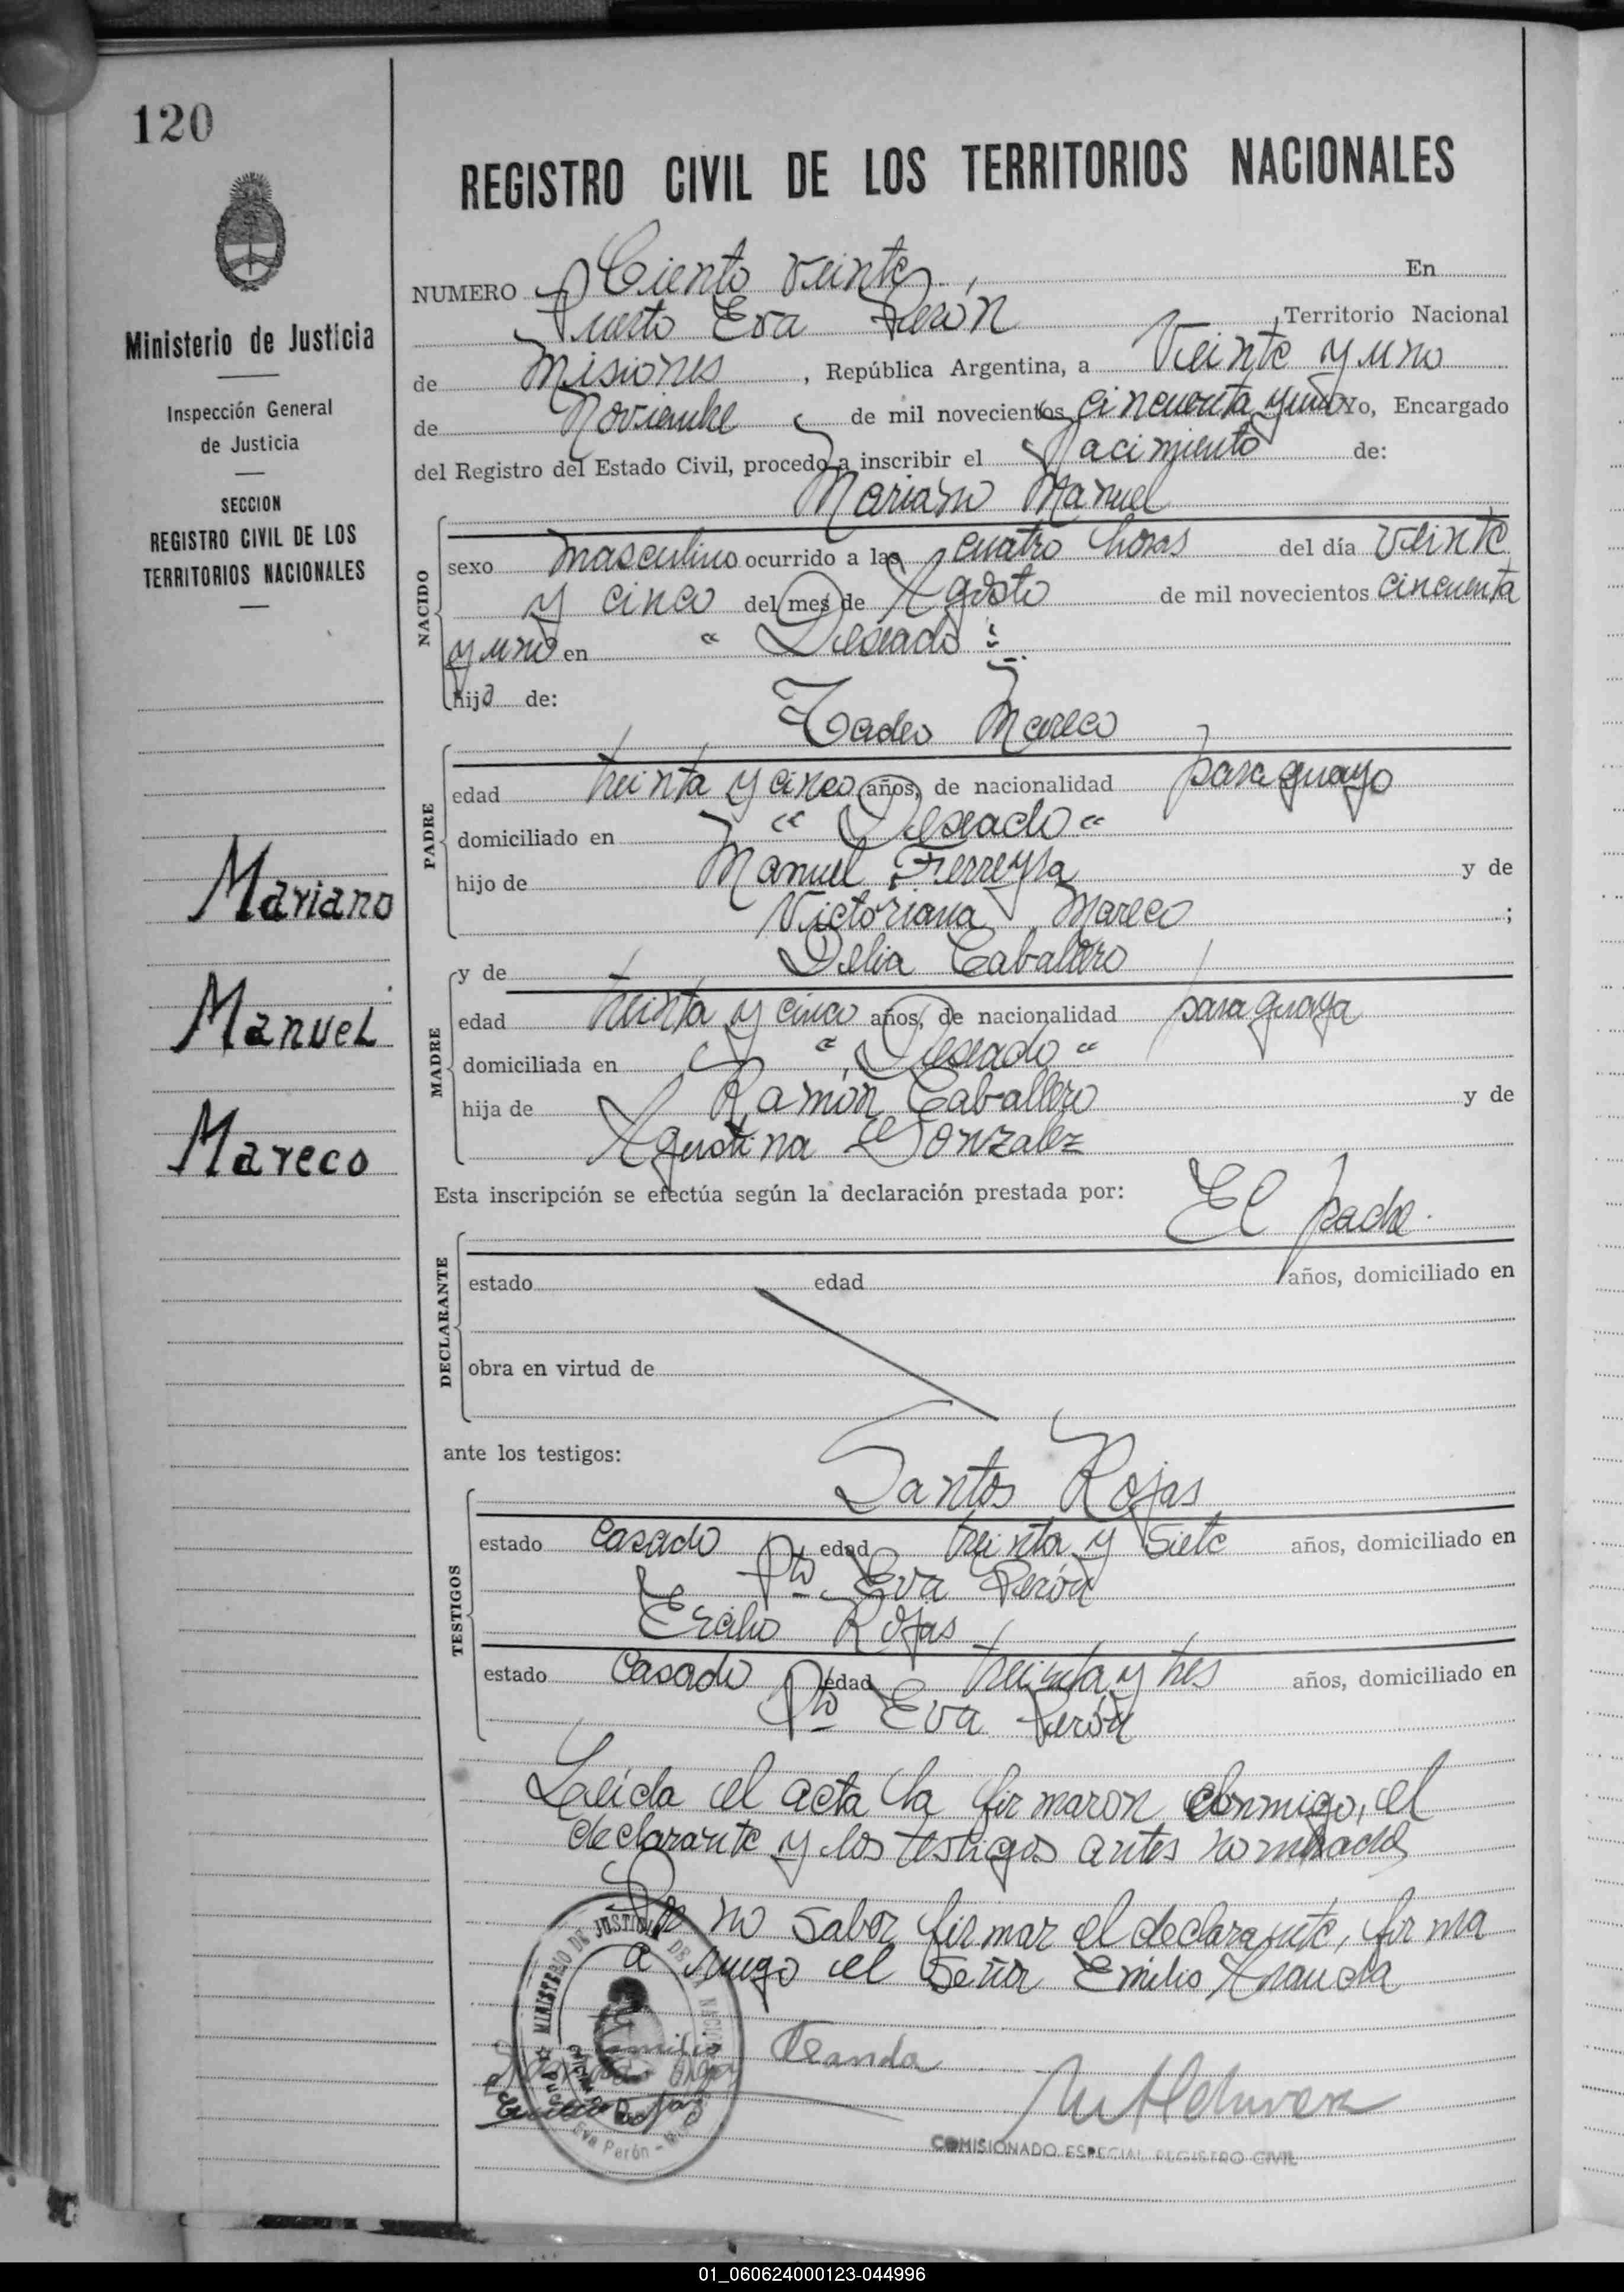 120
Ministerio de Justicia
Inspección General
de Justicia
SECCION
REGISTRO CIVIL DE LOS
TERRITORIOS NACIONALES
Mariano
Manuel
Mareco
REGISTRO CIVIL DE LOS TERRITORIOS NACIONALES
NUMERO Ciento veinte, En
Puerto Eva Perón Territorio Nacional
de Misiones, República Argentina, a Veinte y uno
de Noviembre de mil novecientos cincuenta y uno Yo, Encargado
del Registro del Estado Civil, procedo a inscribir el Nacimiento de:
Mariano Manuel
NACIDO
sexo masculino ocurrido a las cuatro horas del día veinte
y cinco del mes de Agosto de mil novecientos cincuenta
y uno en " Deseado "
hijo de:
Tadeo Mareco
PADRE
edad treinta y cinco años, de nacionalidad paraguayo
domiciliado en " Deseado "
hijo de Manuel Ferreyra y de
Victoriana Mareco ;
MADRE
y de Delia Caballero
edad treinta y cinco años, de nacionalidad paraguaya
domiciliada en " Deseado "
hija de Ramón Caballero y de
Agustina Gonzalez
Esta inscripción se efectúa según la declaración prestada por: El padre.
DECLARANTE
estado edad años, domiciliado en
obra en virtud de
ante los testigos:
Santos Rojas
TESTIGOS
estado casado edad treinta y siete años, domiciliado en
Pto Eva Perón
Ercilio Rojas
estado Casado edad treinta y tres años, domiciliado en
Pto Eva Perón
Leída el acta la firmaron conmigo, el
declarante y los testigos antes nombrados
Por no saber firmar el declarante, firma
a ruego el Señor Emilio Aranda
MINISTERIO DE JUSTICIA DE LA NACION
Emilio Aranda
Rojas
Eva Perón
COMISIONADO ESPECIAL REGISTRO CIVIL
01_060624000123-044996